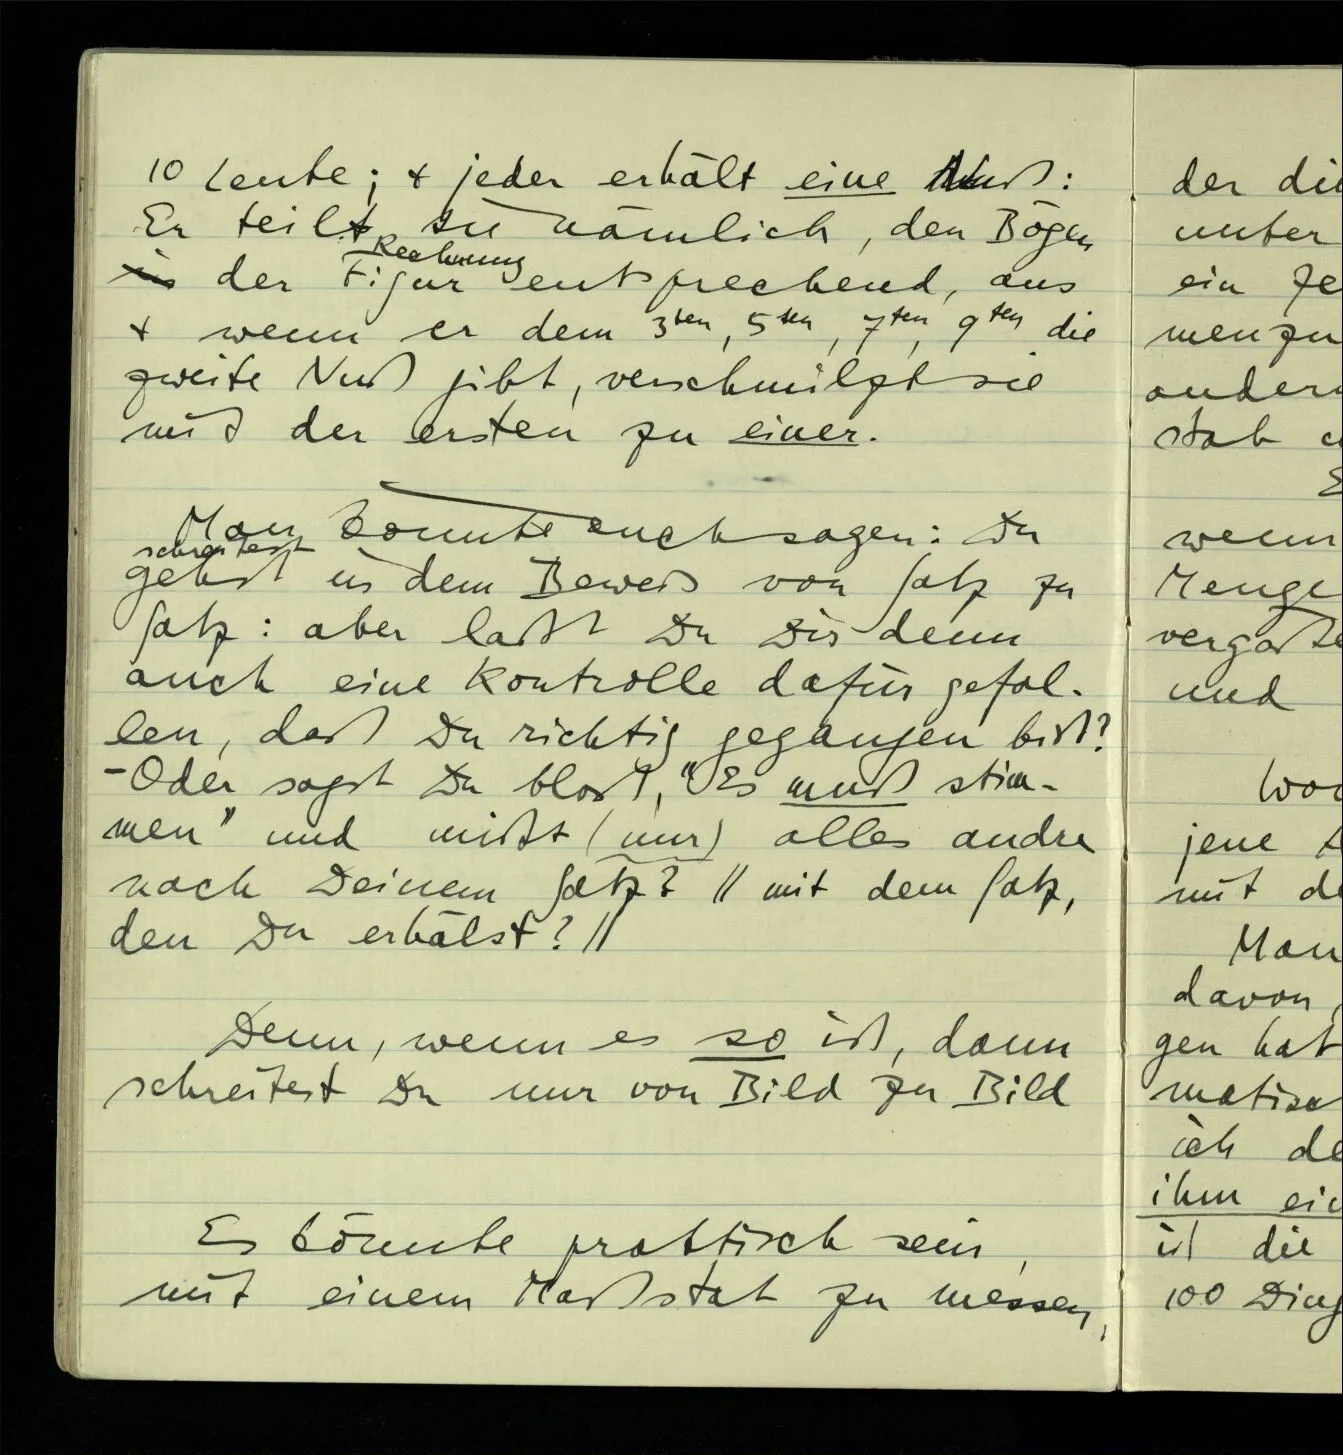 10 Leute; + jeder erhält eine Nuß:
Er teilt sie nämlich, den Bögen
Rechnung
in der Figur entsprechend, aus
+ wenn er dem 3ten, 5ten, 7ten, 9ten die
zweite Nuß gibt, verschmilzt sie
mit der ersten zu einer.
Man könnte auch sagen: Du
schreitest
gehst in dem Beweis von Satz zu
Satz: aber laßt Du Dir denn
auch eine Kontrolle dafür gefal-
len, daß Du richtig gegangen bist?
-Oder sagst Du bloß, "Es muß stim-
men" und mißt (nur) alles andre
nach Deinem Satz? // mit dem Satz,
den Du erhälst? //
Denn, wenn es so ist, dann
schreitest Du nur von Bild zu Bild
Es könnte praktisch sein,
mit einem Maßstab zu messen,
der die
unter
ein Ze
menzu
andern
stab
wenn
Menge
vergaße
und
jene
mit de
Man
davon,
gen hat
matisc
ich de
ihm ein
ist die
100 Ding